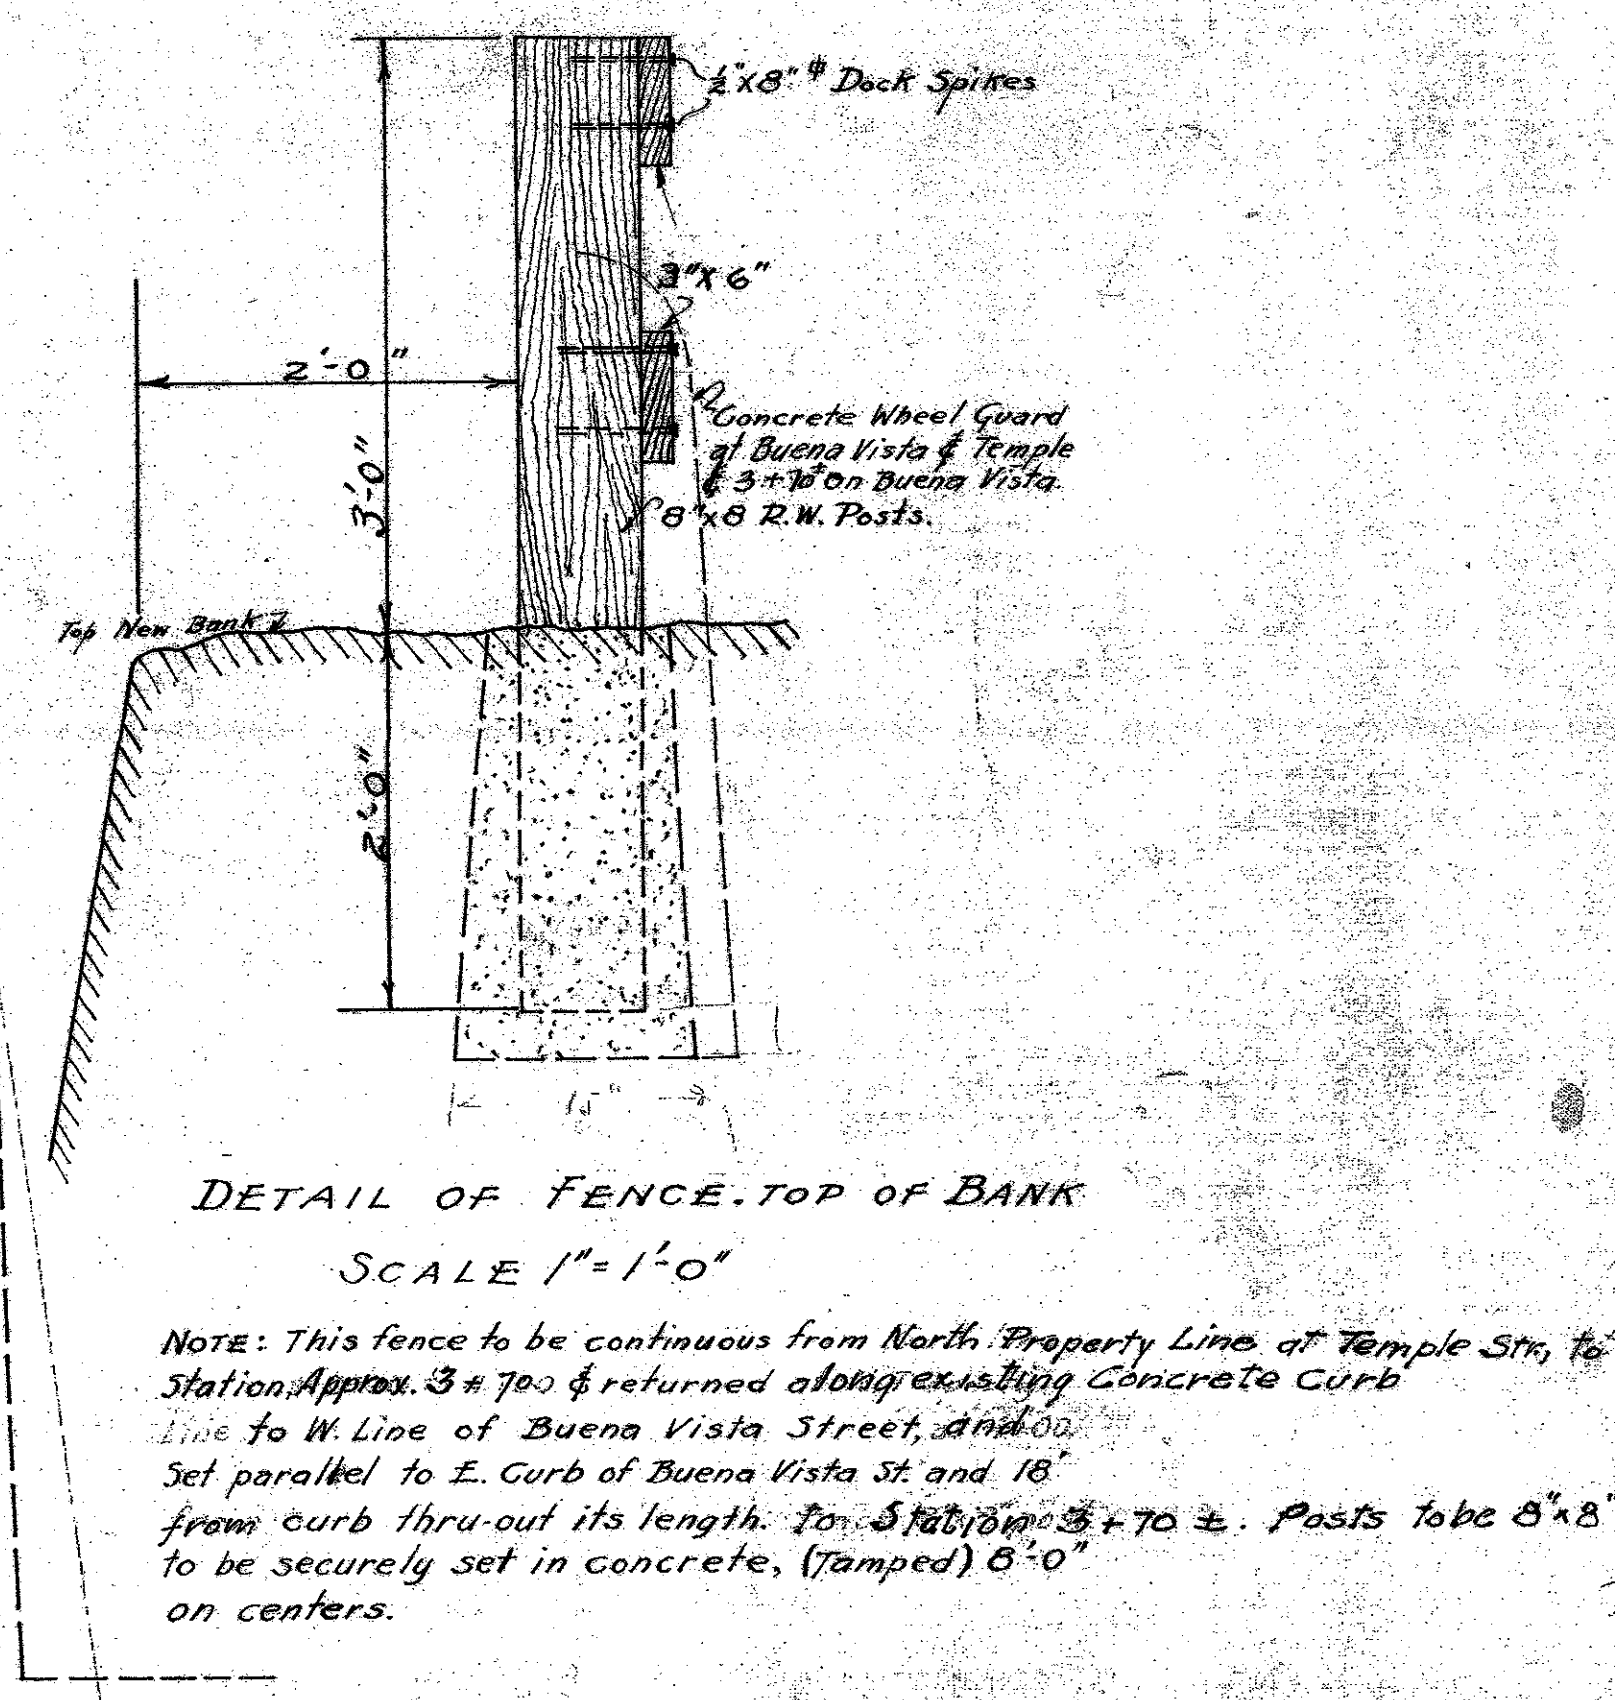 ½"x8" ϕ Dock Spikes
3"x 6"
2'-0"
Concrete Wheel Guard
at Buena Vista & Temple
& 3+70± on Buena Vista.
3'-0"
8"x8 R.W. Posts.
Top New Bank
2'-0"
15"
DETAIL OF FENCE. TOP OF BANK
SCALE 1"= 1'-0"
NOTE: This fence to be continuous from North Property Line at Temple Str, to
Station, Approx. 3 + 70 & returned along existing Concrete Curb
Line to W. Line of Buena Vista Street, and
Set parallel to E. Curb of Buena Vista St. and 18'
from curb thru-out its length. to Station 3+70 ±. Posts to be 8"x8"
to be securely set in concrete, (Tamped) 8'-0"
on centers.